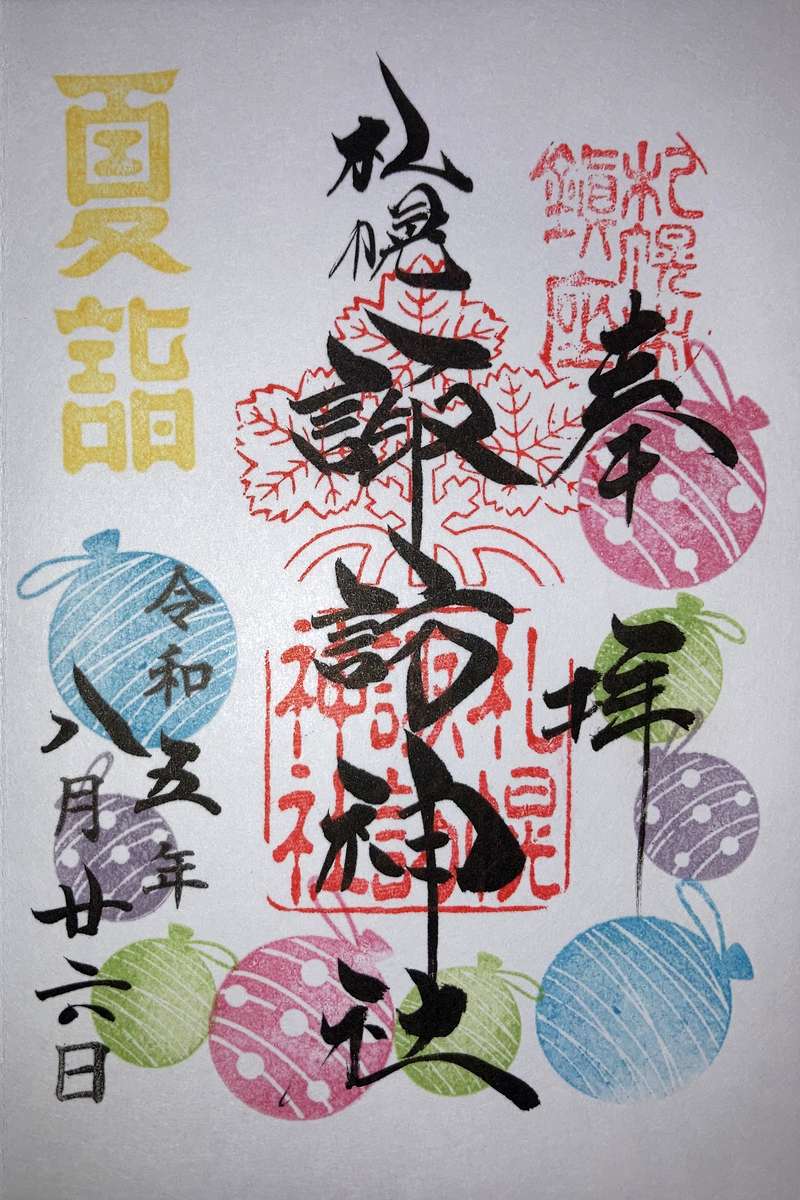 奉拝
札幌鎮座
札幌諏訪神社
札幌諏訪神社
夏詣
令和五年
八月廿六日